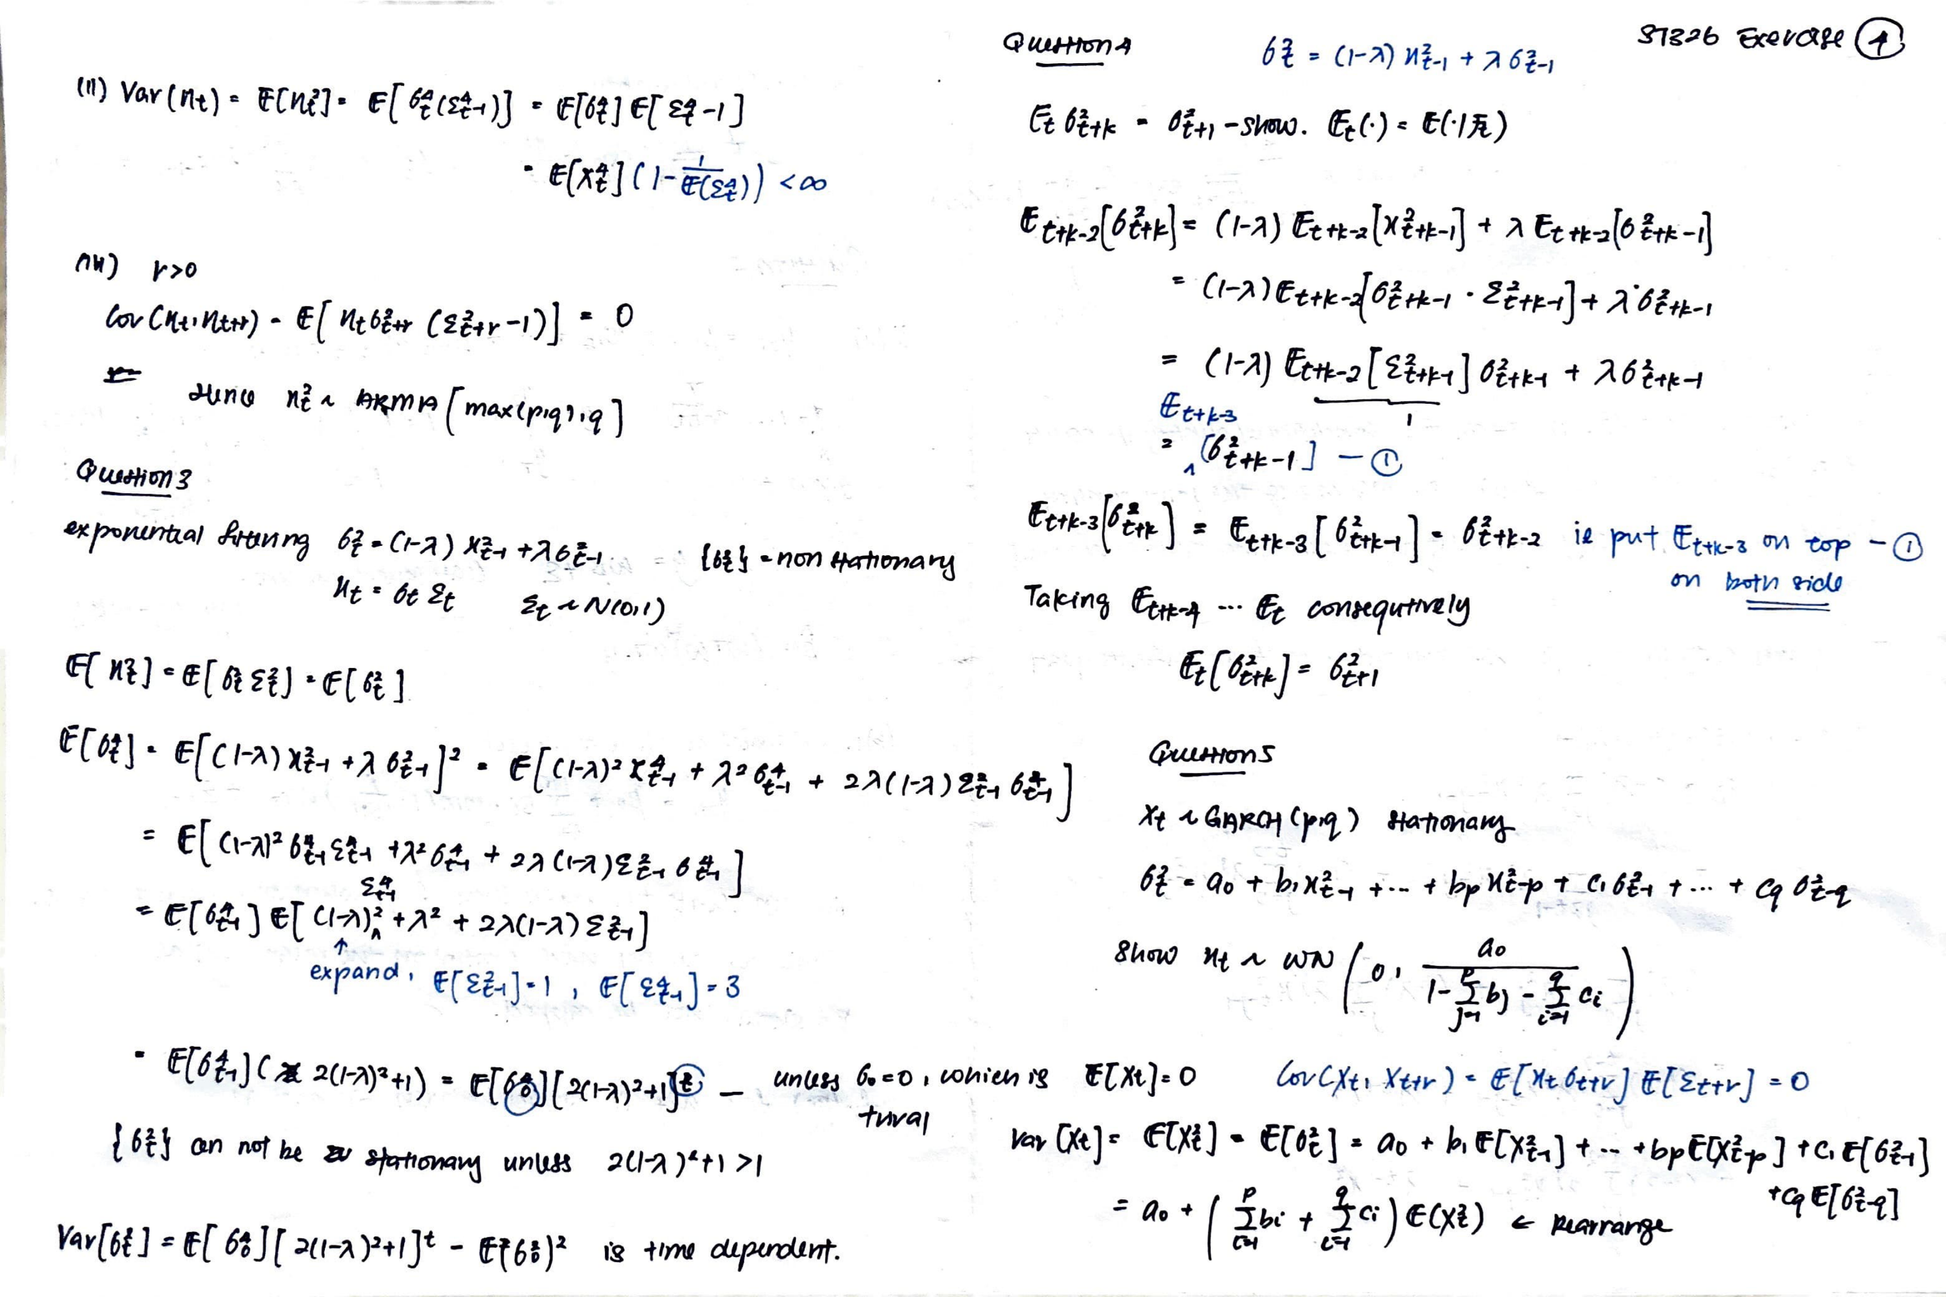 (ii) Var(ηt) = E[ηt²] = E[σt⁴(εt⁴-1)] = E[σt⁴] E[εt⁴-1]
= E[Xt⁴](1 - 1/E(εt⁴)) < ∞
r>0
Cov(ηt, ηt+r) = E[ηt σ²t+r (ε²t+r - 1)] = 0
Hence xt² ~ ARMA [max(p,q), q]
Question 3
exponential filtering σt² = (1-λ) x²t-1 + λσ²t-1 {σt²} = non stationary
xt = σt εt εt ~ N(0,1)
E[xt²] = E[σt² εt²] = E[σt²]
E[σt⁴] = E[(1-λ) x²t-1 + λ σ²t-1]² = E[(1-λ)² x⁴t-1 + λ² σ⁴t-1 + 2λ(1-λ) ε²t-1 σ⁴t-1]
= E[(1-λ)² σ⁴t-1 ε⁴t-1 + λ² σ⁴t-1 + 2λ(1-λ) ε²t-1 σ⁴t-1]
= E[σ⁴t-1] E[(1-λ)² ε⁴t-1 + λ² + 2λ(1-λ) ε²t-1]
↑ expand, E[ε²t-1] = 1, E[ε⁴t-1] = 3
= E[σ⁴t-1](2(1-λ)²+1) = E[σ0⁴][2(1-λ)²+1]^t — unless σ0=0, which is
trival
{σt²} can not be stationary unless 2(1-λ)²+1 >1
Var[σt²] = E[σ0⁴][2(1-λ)²+1]^t - E[σ0²]² is time dependent.
ST326 Exercise 4
Question 4 σt² = (1-λ) x²t-1 + λσ²t-1
Et σ²t+k = σ²t+1 - show. Et(·) = E(·|Ft)
Et+k-2[σ²t+k] = (1-λ) Et+k-2[x²t+k-1] + λ Et+k-2[σ²t+k-1]
= (1-λ) Et+k-2[σ²t+k-1 · ε²t+k-1] + λσ²t+k-1
= (1-λ) Et+k-2[ε²t+k-1] σ²t+k-1 + λσ²t+k-1
1
= Et+k-3 [σ²t+k-1] - ①
Et+k-3[σ²t+k] = Et+k-3[σ²t+k-1] = σ²t+k-2 ie put Et+k-3 on top - ①
on both side
Taking Et+k-4 ... Et consequtively
Et[σ²t+k] = σ²t+1
Question 5
Xt ~ GARCH(p,q) stationary
σt² = a0 + b1 x²t-1 + ... + bp x²t-p + c1 σ²t-1 + ... + cq σ²t-q
Show xt ~ WN (0, a0 / (1 - Σ_{j=1}^{p} bj - Σ_{i=1}^{q} ci))
E[Xt] = 0 Cov(Xt, Xt+r) = E[xt σt+r] E[εt+r] = 0
Var[Xt] = E[Xt²] = E[σt²] = a0 + b1 E[X²t-1] + ... + bp E[X²t-p] + c1 E[σ²t-1]
+ cq E[σ²t-q]
= a0 + (Σ_{i=1}^{p} bi + Σ_{i=1}^{q} ci) E(Xt²) ← Rearrange